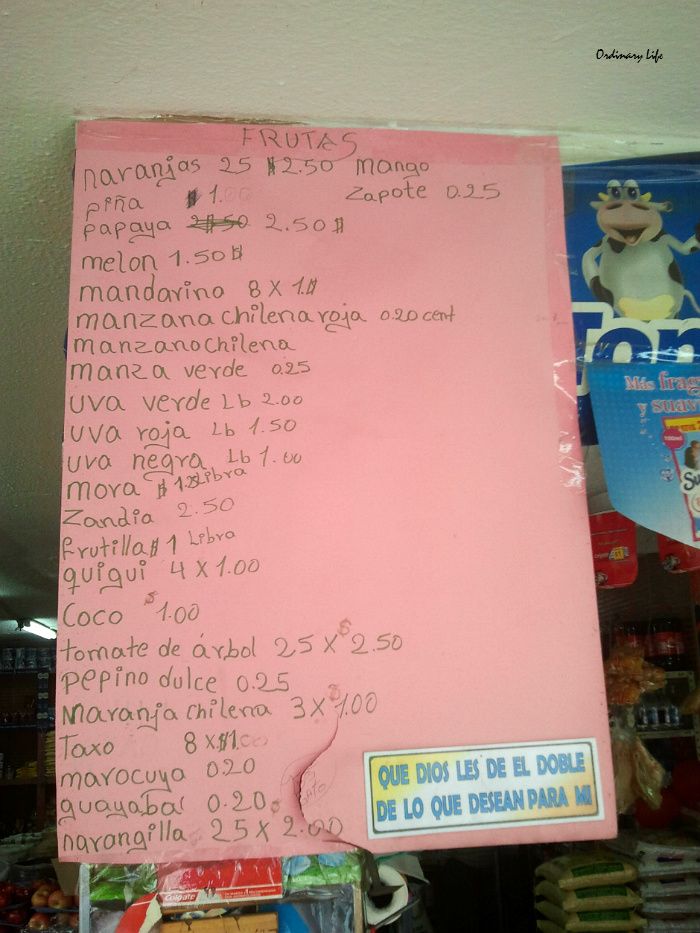 Ordinary Life
FRUTAS
naranjas 25 $2.50 Mango
piña $1.00 Zapote 0.25
papaya 2.50$
melon 1.50$
mandarina 8 X 1.$
manzana chilena roja 0.20 cent
manzana chilena
manza verde 0.25
uva verde Lb 2.00
uva roja Lb 1.50
uva negra Lb 1.00
mora $ Libra
Zandia 2.50
frutilla $1 Libra
quigui 4 X 1.00
Coco $1.00
tomate de árbol 25 X $2.50
pepino dulce 0.25
Naranja chilena 3 X $1.00
Taxo 8 X $1.00
marocuya 0.20
guayaba 0.20
narangilla 25 X 2.00
QUE DIOS LES DE EL DOBLE
DE LO QUE DESEAN PARA MI
Ton
Más frag
y suav
Su
Colgate